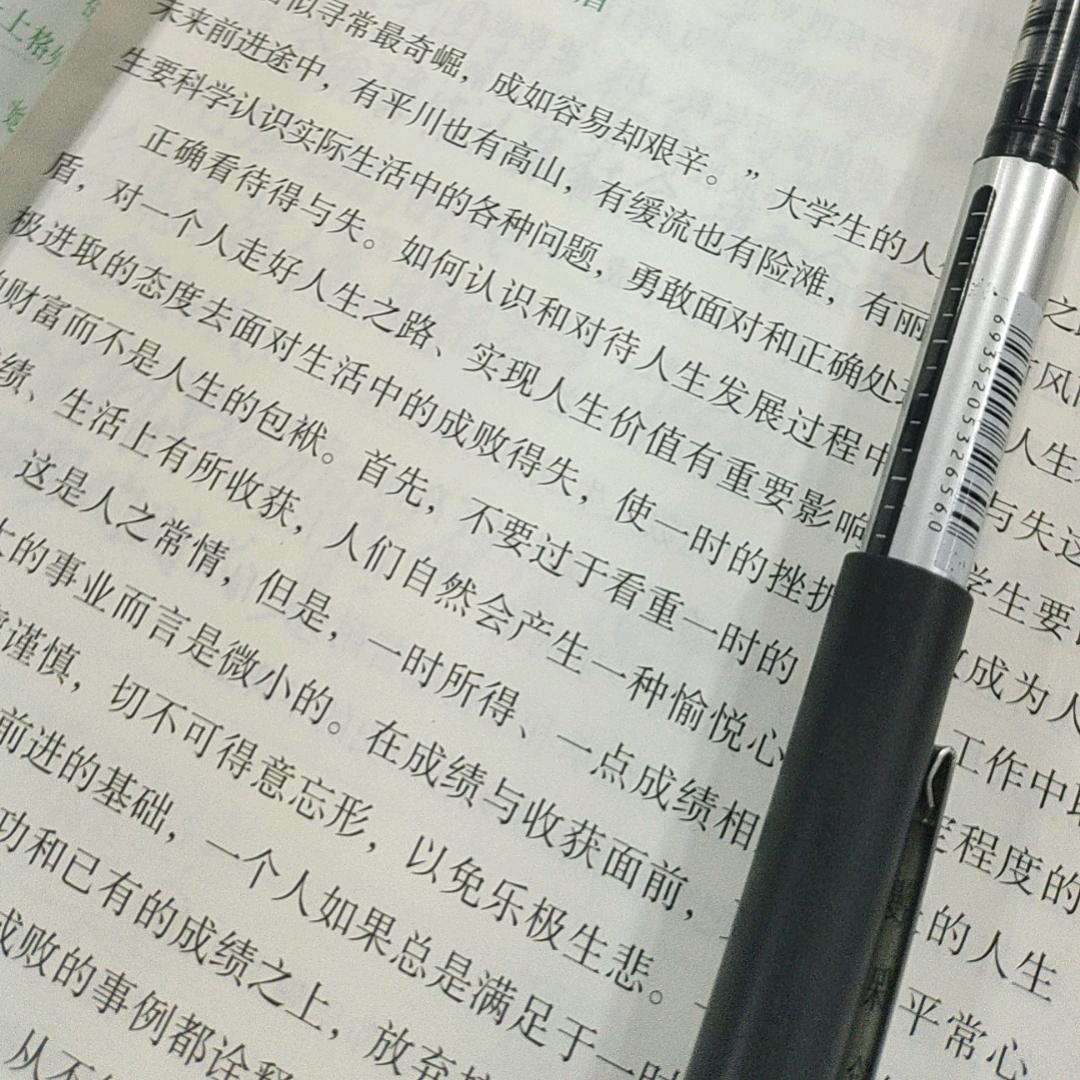 上格
似寻常最奇崛，成如容易却艰辛。”大学生的人 之
未来前进途中，有平川也有高山，有缓流也有险滩，有丽 风
生要科学认识实际生活中的各种问题，勇敢面对和正确处 人生
正确看待得与失。如何认识和对待人生发展过程中 与失这
盾，对一个人走好人生之路、实现人生价值有重要影响 学生要
极进取的态度去面对生活中的成败得失，使一时的挫折 成为人
财富而不是人生的包袱。首先，不要过于看重一时的 工作中取
绩、生活上有所收获，人们自然会产生一种愉悦心 程度的
这是人之常情，但是，一时所得、一点成绩相 的人生
的事业而言是微小的。在成绩与收获面前， 平常心
谨慎，切不可得意忘形，以免乐极生悲。
前进的基础，一个人如果总是满足于一时
功和已有的成绩之上，放弃
成败的事例都诠释
从不
6935205326560